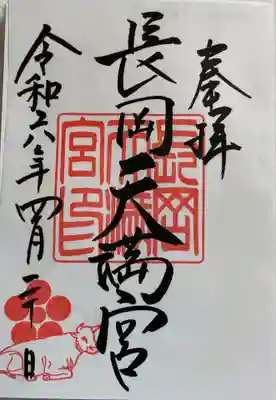 奉拝
長岡天満宮
長岡天満宮印
令和六年四月二十日